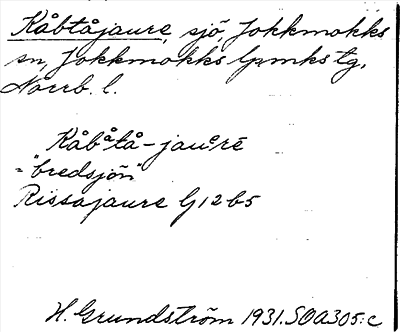 Kåbtåjaure, sjö, Jokkmokks
sn, Jokkmokks lpmks tg,
Norrb. l.
Kåbåtå-jaure
="bredsjön"
Rissajaure G12b5
H. Grundström 1931. SOA305:c